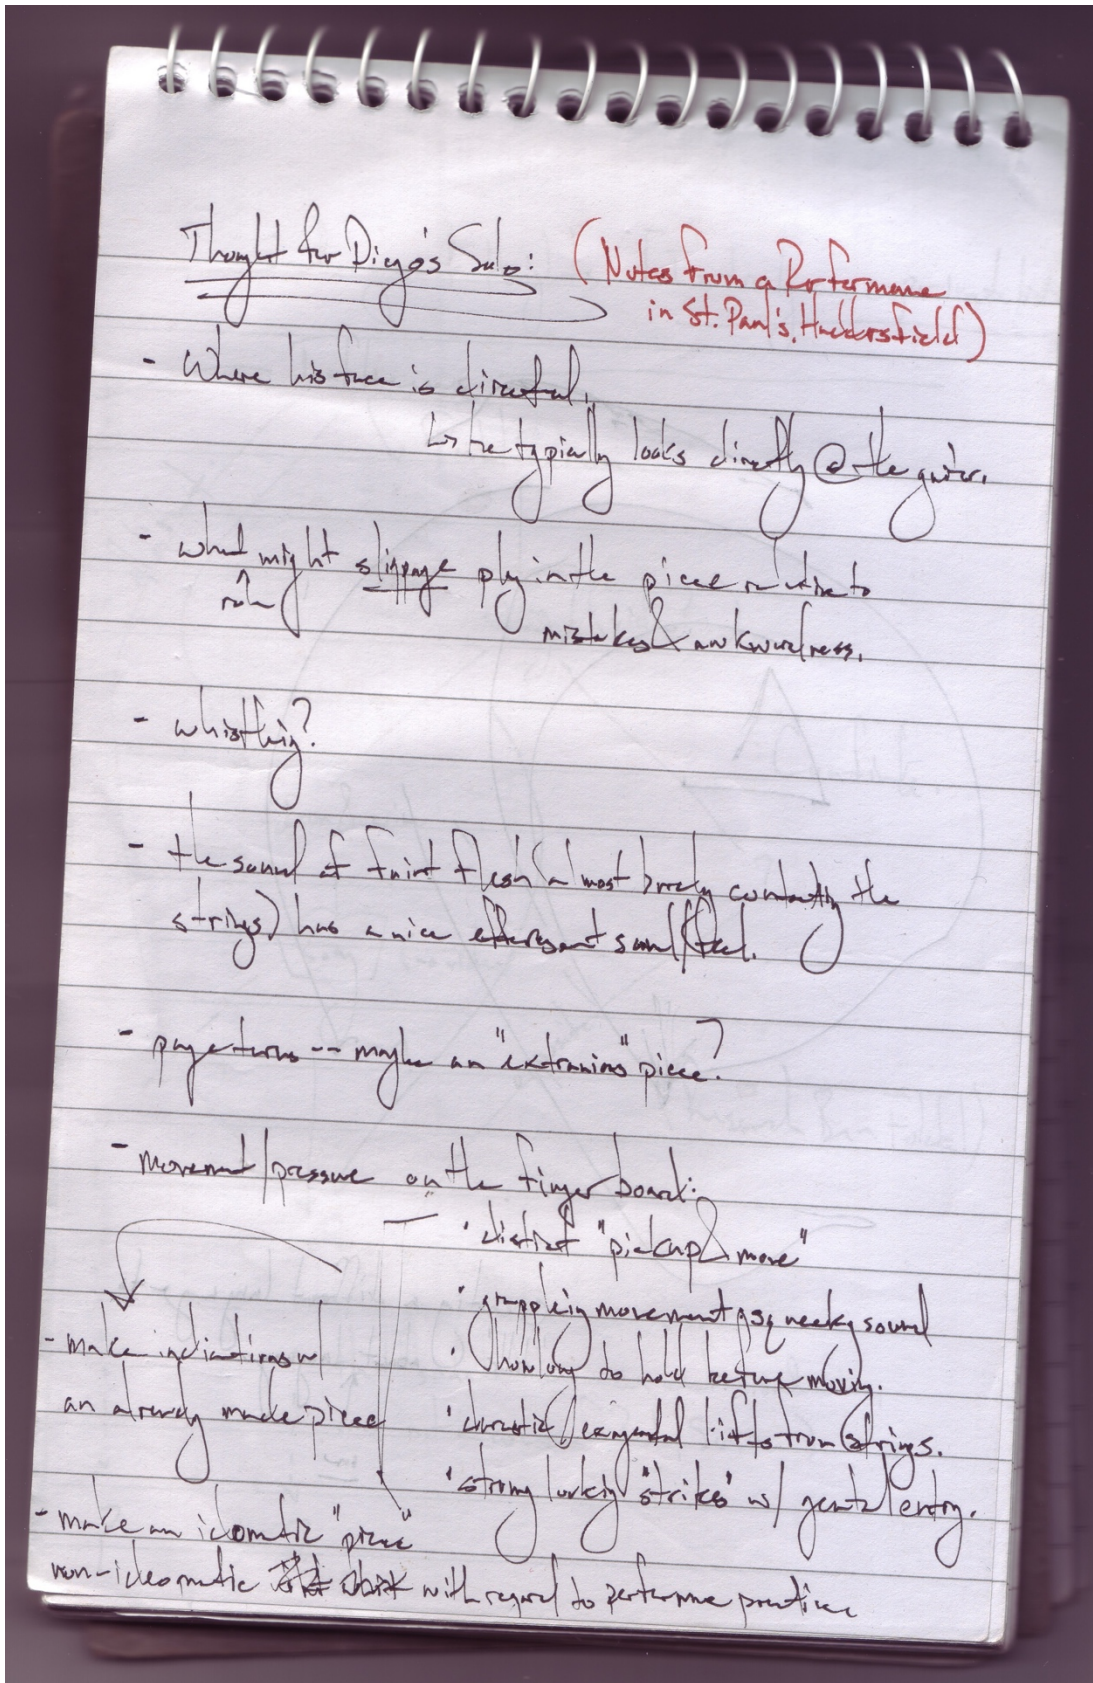 Thought for Diego's Solo:
(Notes from a Performance
in St. Paul's, Huddersfield)
- Where his face is directed.
↳ he typically looks directly @ the guitar.
- what might slippage play in the piece relative to
↑ role
mistakes & awkwardness.
- whistling?
- the sound of faint flesh (almost barely contacting the
strings) has a nice effervescent sound/feel.
- page turns -- maybe an "extranious" piece?
- movement/pressure on the finger board:
· distinct "pickup & move"
· grappling movement squeeky sound
· how long to hold before moving.
· drastic/exagerated lifts from strings.
· strong looking "strikes" w/ gentle entry.
- make indications w/
an already made piece
- make an idiomatic "piece"
non-ideomatic with regard to performance practice